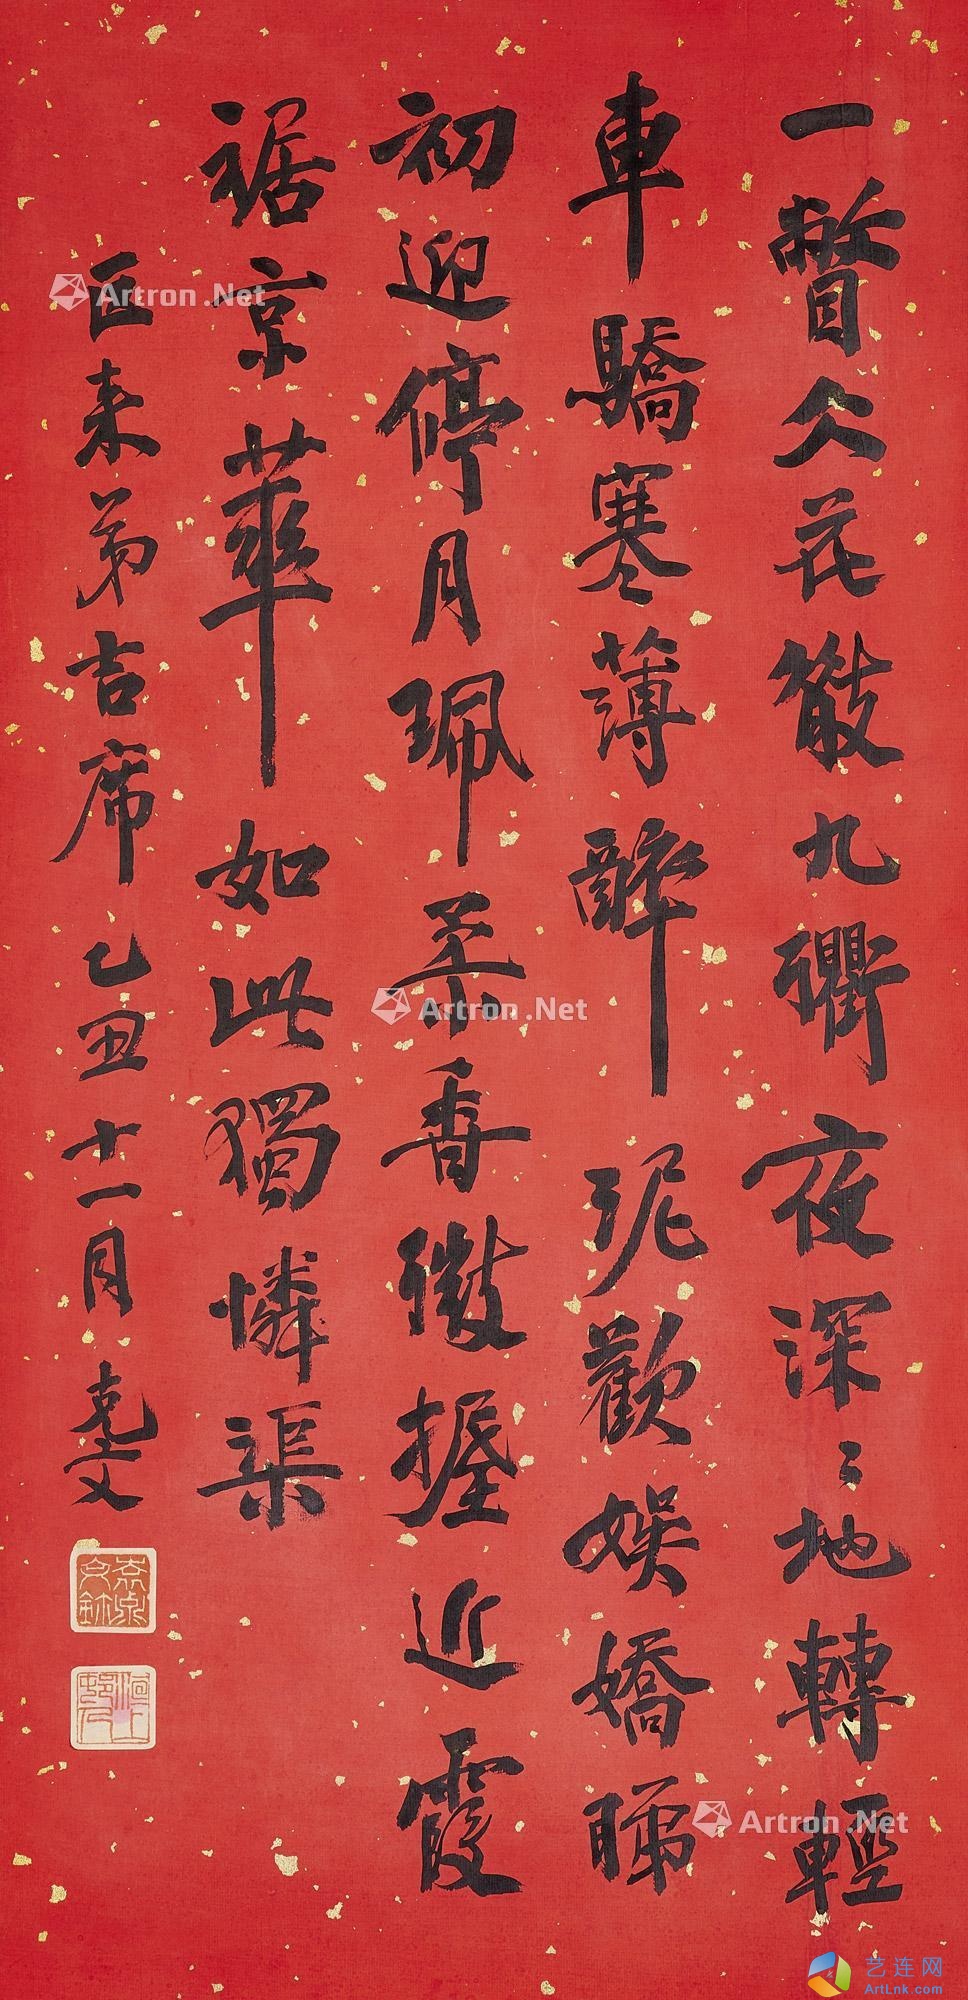 一瞥人花散九衢夜深深地轉輕
車驕寒薄醉泥歡娛嬌睇
初迎停月珮柔香微握近霞
裾京華如此獨憐渠
匡來弟吉席 乙丑十一月 克文
Artron.Net
Artron.Net
Artron.Net
艺连网
ArtLnk.com